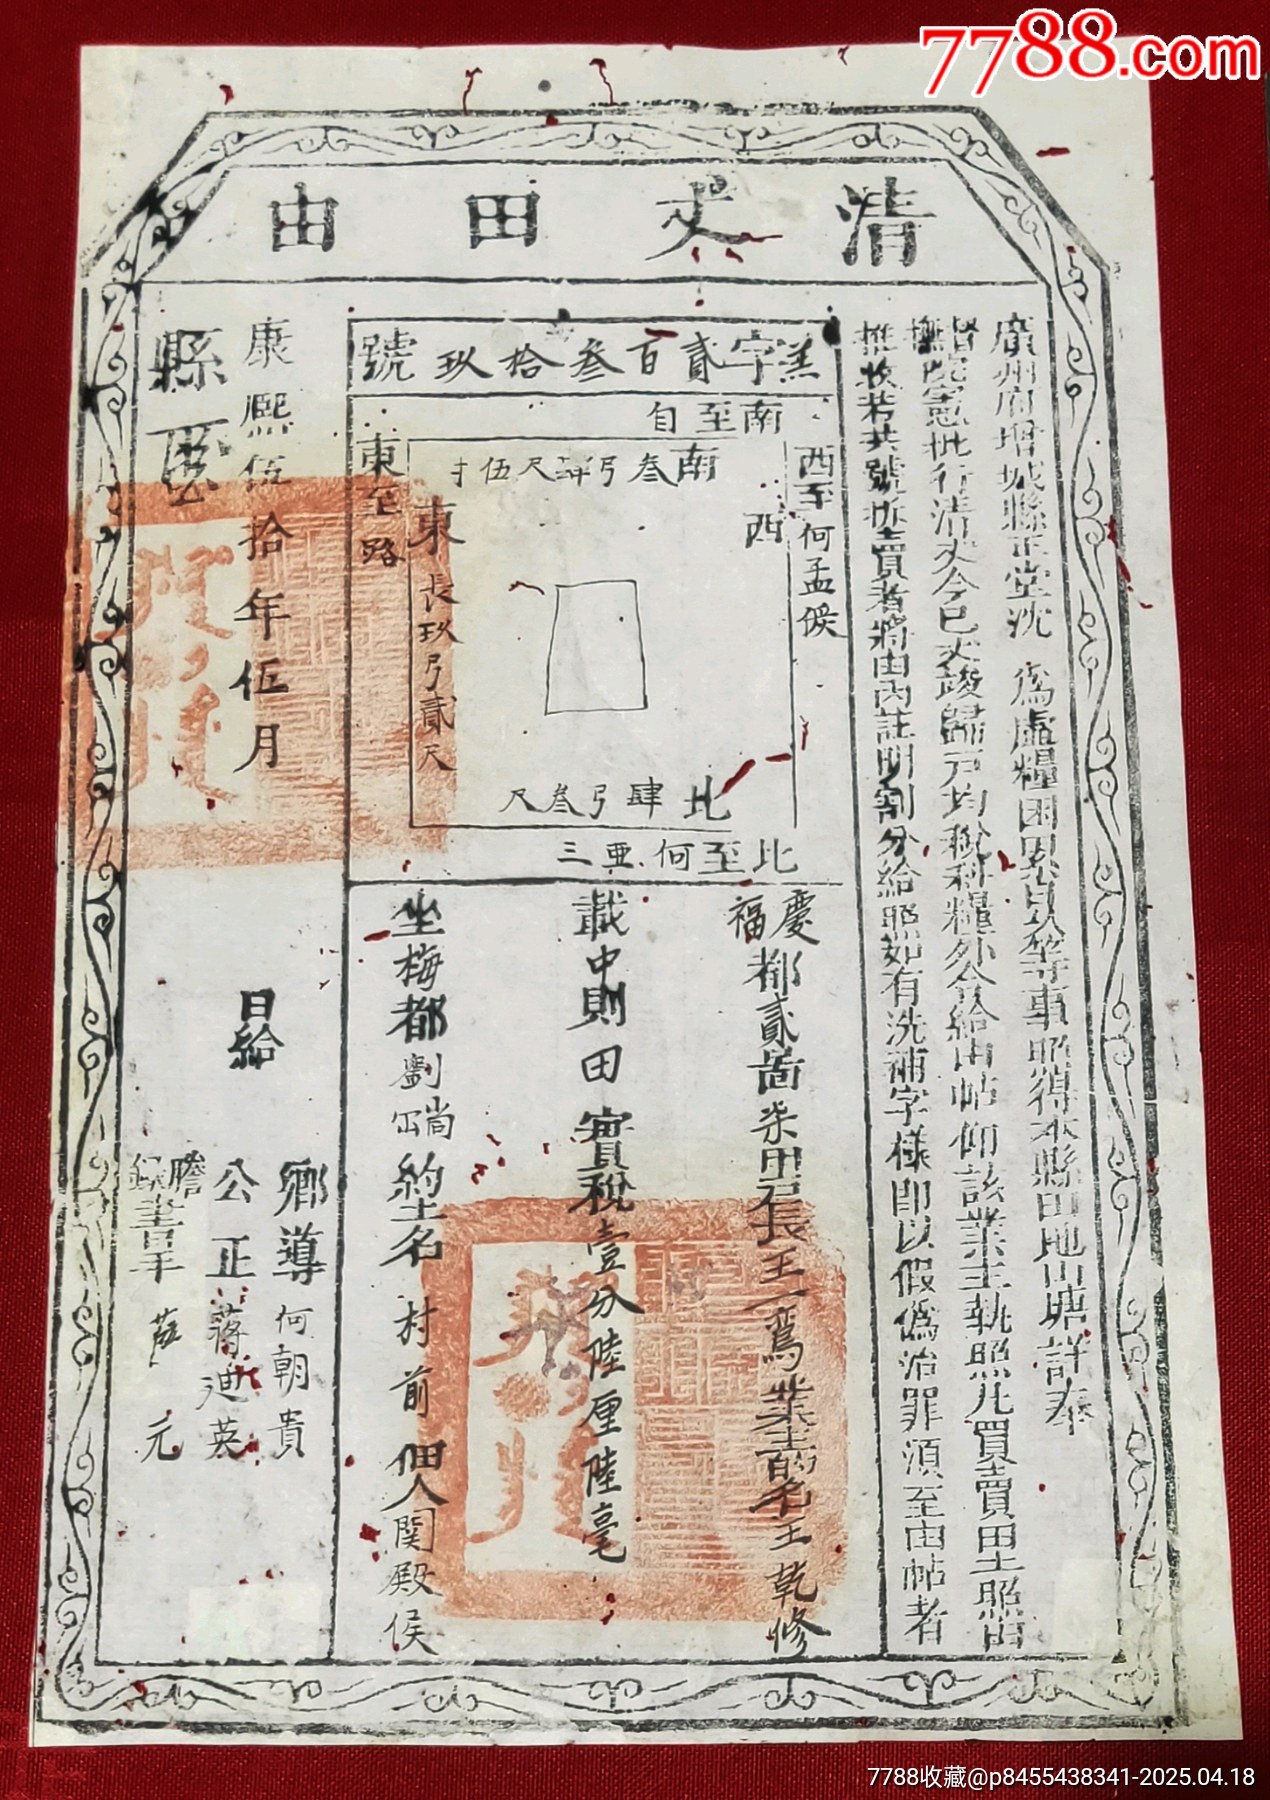 7788.com
清丈田由
廣州府增城縣正堂沈 為虛糧困累最慘等事照得本縣田地山塘詳奉
督撫院憲批行清丈今已丈竣歸戶均稅科糧外合給由帖仰該業主執照凡買賣田土照由
推收若共號拆賣者將由內註明割分給照如有洗補字樣即以假偽治罪須至由帖者
羔字貳百叁拾玖號
南至自
西至何孟候
南叁弓肆尺伍寸
西
東至路
東長玖弓貳尺
北肆弓叁尺
北至何亞三
慶福都貳啚柒甲里長王一鳶業主的名王乾修
載中則田實稅壹分陸厘陸毫
坐梅都劃崗約土名村前佃人関殿侯
康熙伍拾年伍月 日給
縣
鄉導何朝貴
公正蔣廸英
謄錄書手 元
7788收藏@p8455438341-2025.04.18